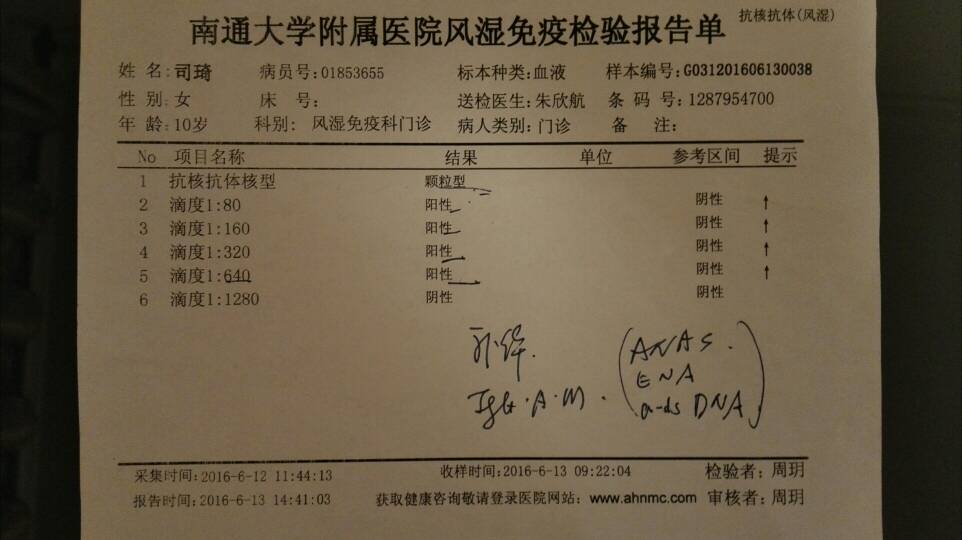 抗核抗体(风湿)
南通大学附属医院风湿免疫检验报告单
姓 名:司琦 病员号:01853655 标本种类:血液 样本编号:G031201606130038
性 别:女 床 号: 送检医生:朱欣航 条 码 号:1287954700
年 龄:10岁 科别: 风湿免疫科门诊 病人类别:门诊 备 注:
No 项目名称 结果 单位 参考区间 提示
1 抗核抗体核型 颗粒型
2 滴度1:80 阳性 阴性 ↑
3 滴度1:160 阳性 阴性 ↑
4 滴度1:320 阳性 阴性 ↑
5 滴度1:640 阳性 阴性 ↑
6 滴度1:1280 阴性 阴性
IgG.A.M.
(ANAS.
ENA
a-ds DNA)
采集时间:2016-6-12 11:44:13 收样时间:2016-6-13 09:22:04 检验者:周玥
报告时间:2016-6-13 14:41:03 获取健康咨询敬请登录医院网站: www.ahnmc.com 审核者:周玥